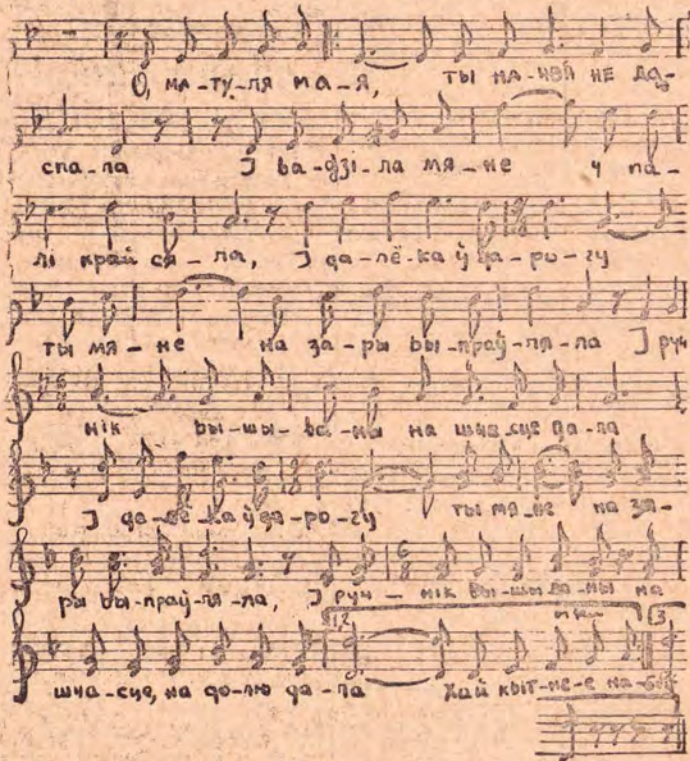 О, МА-ТУ-ЛЯ МА-Я, ТЫ НА-ЧЭЙ НЕ ДА-
спа-ла І ва-дзі-ла мя-не у па-
лі край ся-ла, І да-лё-ка ў да-ро-гу
ты мя-не на за-ры вы-праў-ля-ла І руч
нік вы-шы-ва-ны на шча-сце да-ла
І да-лё-ка ў да-ро-гу ты мя-не на за-
ры вы-праў-ля-ла, І руч-нік вы-шы-ва-ны на
1,2 3
шча-сце, на до-лю да-ла Хай квіт-не-е на